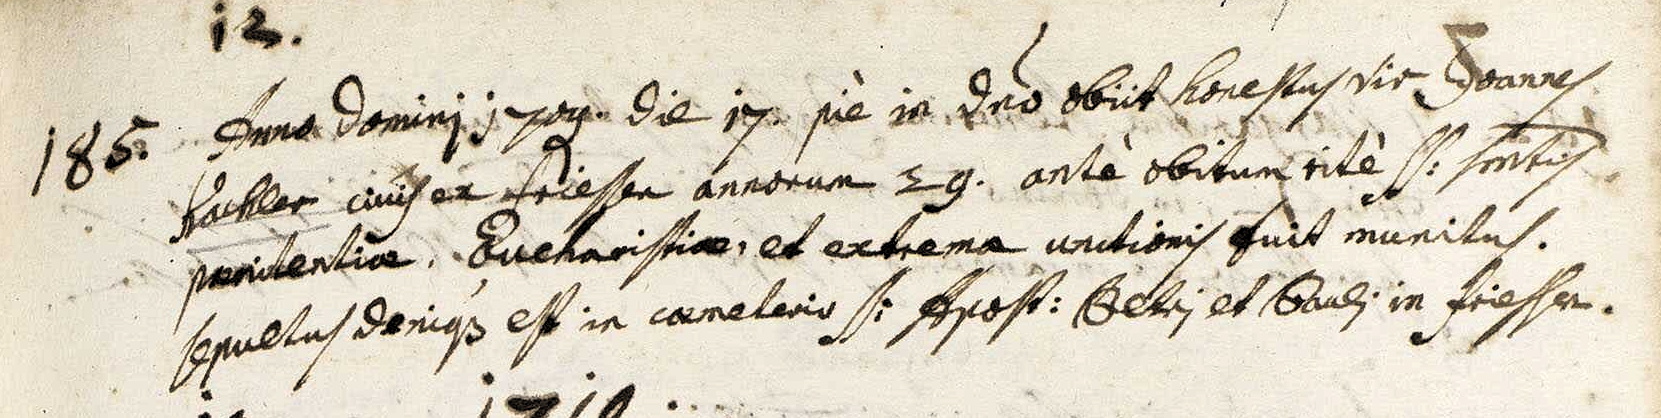 12.
185. Anno Dominj 1709. die 17. piè in Dno obiit honestus vir Joannes
Kachler ciuis ex Friessen annorum 29. antè obitum ritè SS: sacramentis
pænitentiæ, Eucharistiæ, et extremæ unctionis fuit munitus.
sepultus deniq3 est in cœmeterio SS: Apost: Petrj et Paulj in Friessen.
1710.